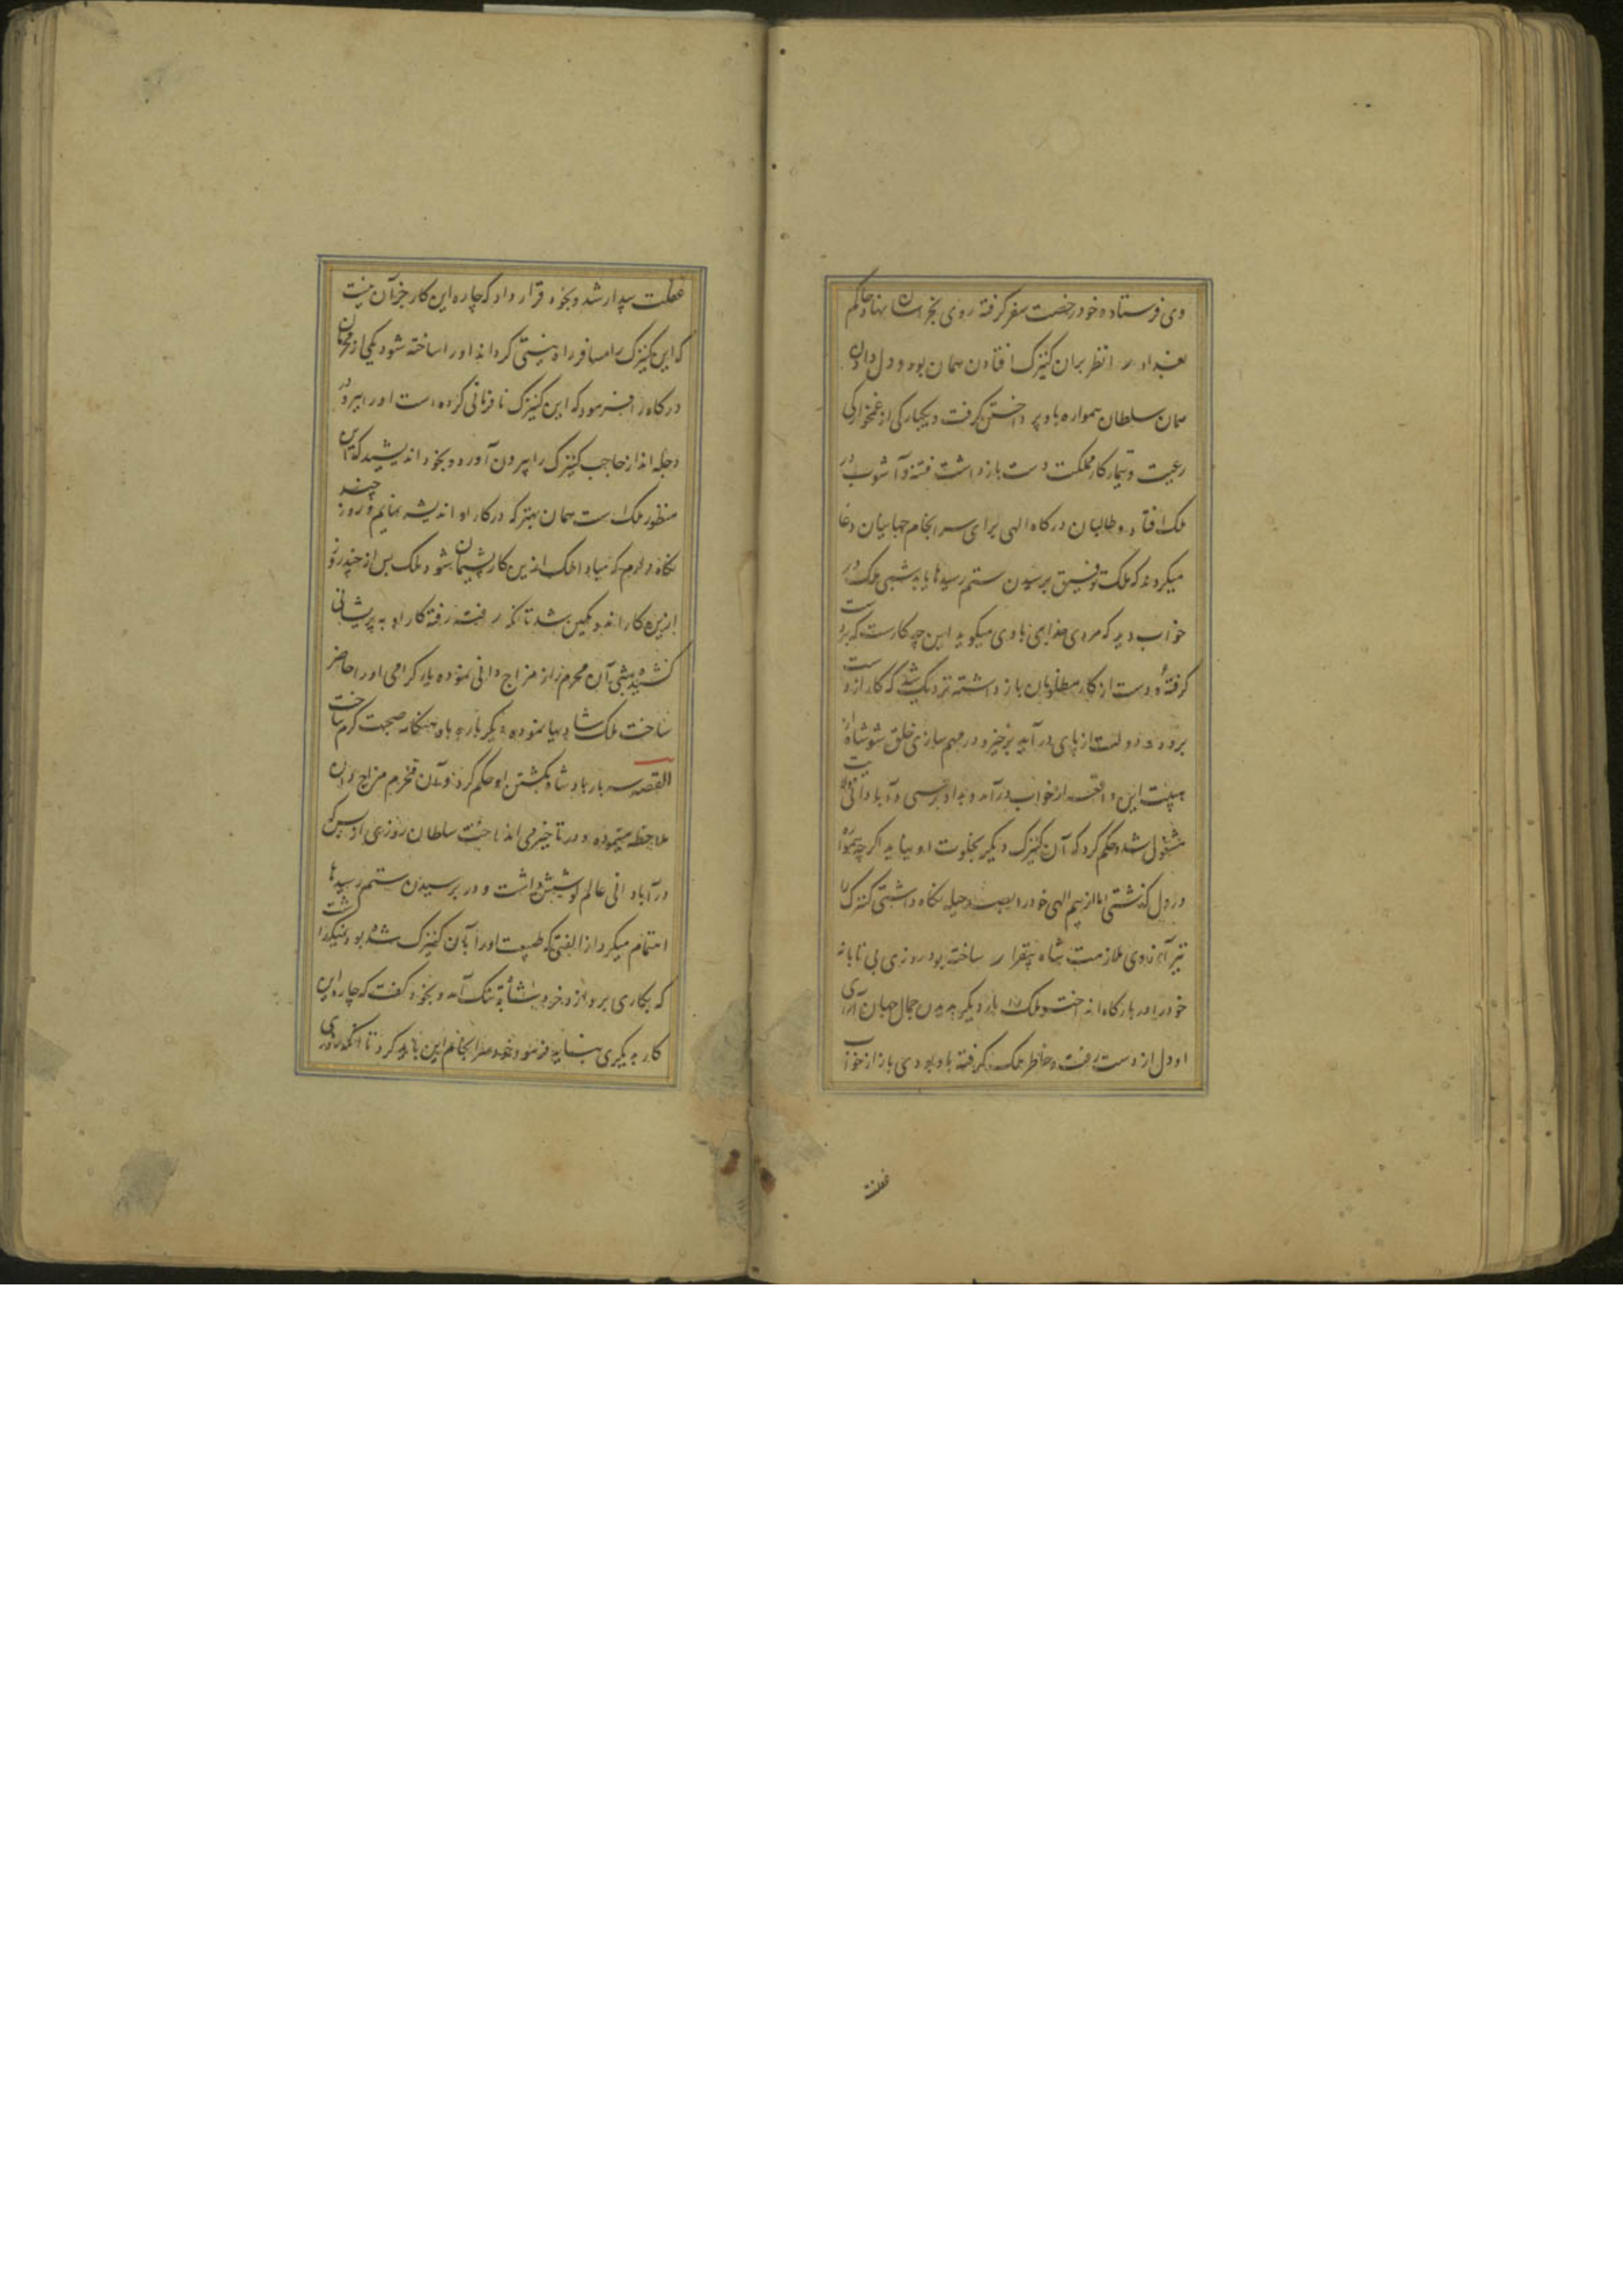 وی فرستاده خود رخصت سفر گرفته روی بخراسان نهاد حاکم
بغداد را نظر بران کنیزک افتادن همان بود و دل دادن
همان سلطان همواره باو پرداختن گرفت و یکبارگی از غمخوارگی
رعیت و تیمار کار مملکت دست باز داشت فتنه و آشوب در
ملک افتاد و طالبان درگاه الهی برای سرانجام جهانیان دعا
میکردند که ملک توفیق پرسیدن ستم رسیدها یابد شبی ملک در
خواب دید که مردی خدایی باوی میگوید این چه کارست که پیش
گرفتهٔ و دست از کار مظلومان باز داشته نزدیک شد که کار از دست
برود و دولت از پای در آید برخیز و در مهم سازی خلق شو شاه از
هیبت این واقعه از خواب درآمد و بدادرسی و آبادانی ولایت
مشغول شد و حکم کرد که آن کنیزک دیگر بخلوت او نیاید اگرچه
در دل گذشتی اما از بیم الهی خود را بصد حیله نگاه داشتی کنیزک را
نیز آرزوی ملازمت شاه بیقرار ساخته بود روزی بی تابانه
خود را در بارگاه انداخت و ملک را بار دیگر بدیدن جمال جهان آرای
او دل از دست رفت و خاطر ملک گرفته باو بود پس باز از خواب
غفلت
غفلت بیدار شد و بخود قرار داد که چاره این کار جز آن نیست
که این کنیزک را مسافر راه نیستی گرداند او را ساخته شود یکی از محرمان
درگاه را فرمود که این کنیزک نافرمانی کرده است او را ببر و در
دجله انداز حاجب کنیزک را بیرون آورد و بخود اندیشید که این
منظور ملک است همان بهتر که در کار او اندیشه نمایم و روز چند
نگاه دارم که مبادا ملک ازین کار پشیمان شود ملک پس از چند روز
ازین کار اندوهگین شد تا آنکه رفته رفته کار او به پریشانی
کشید پیش آن محرم راز مزاج دانی نموده یار گرامی او را حاضر
ساخت ملک شادیها نموده دیگر باره باو هنگامه صحبت گرم ساخت
القصه سه بار پادشاه بکشتن او حکم کرد و آن محرم مزاج دان
ملاحظه مینموده و در تاخیر می انداخت سلطان روزی از بس که
در آبادانی عالم کوشیش داشت و در پرسیدن ستم رسیدها
اهتمام میکرد از الفتی که طبیعت او را بآن کنیزک شده بود نمیگذاشت
که بکاری پردازد خرد بنشاة تنک آمد و بخود گفت که چاره این
کار بدیگری نباید فرمود خود سرانجام این باید کرد تا آنکه روزی